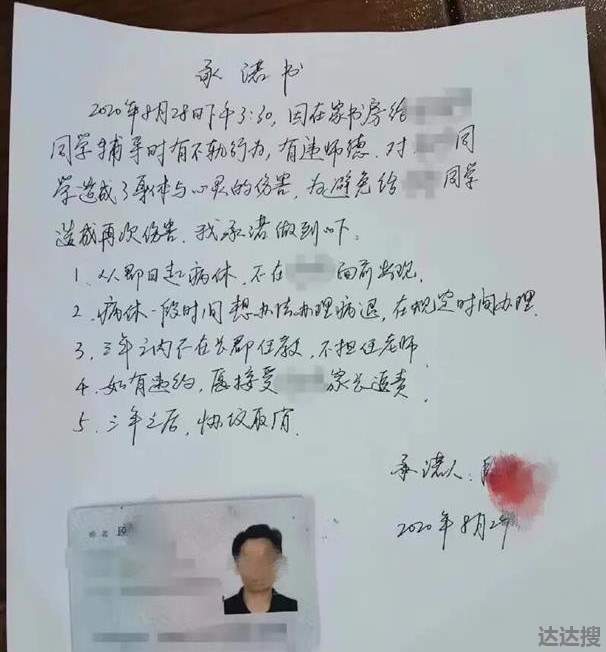 承诺书
2020年8月28日下午3:30,因在家书房给
同学辅导时有不轨行为,有违师德.对 同
学造成了身体与心灵的伤害,为避免给 同学
造成再次伤害.我承诺做到以下:
1、从即日起病休,不在 面前出现.
2、病休一段时间想办法办理病退,在规定时间办理.
3、三年之内不在长郡任教,不担任老师.
4、如有违约,愿接受 家长追责.
5、三年之后,协议取消.
承诺人:
2020年8月2
姓名 段
达达搜